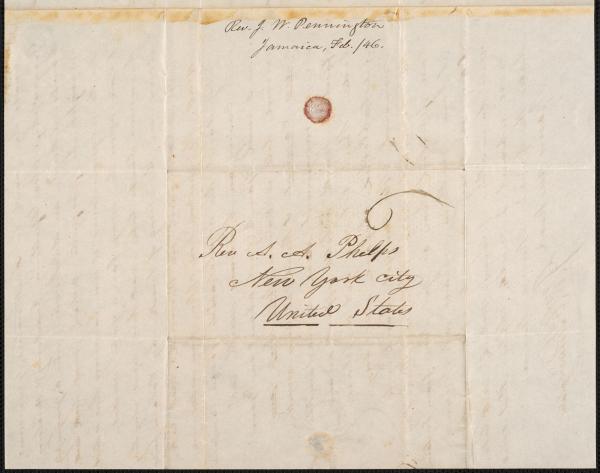 Rev. J. W. Pennington
Jamaica, Feb. /46.
Rev A. A. Phelps
New York City
United States